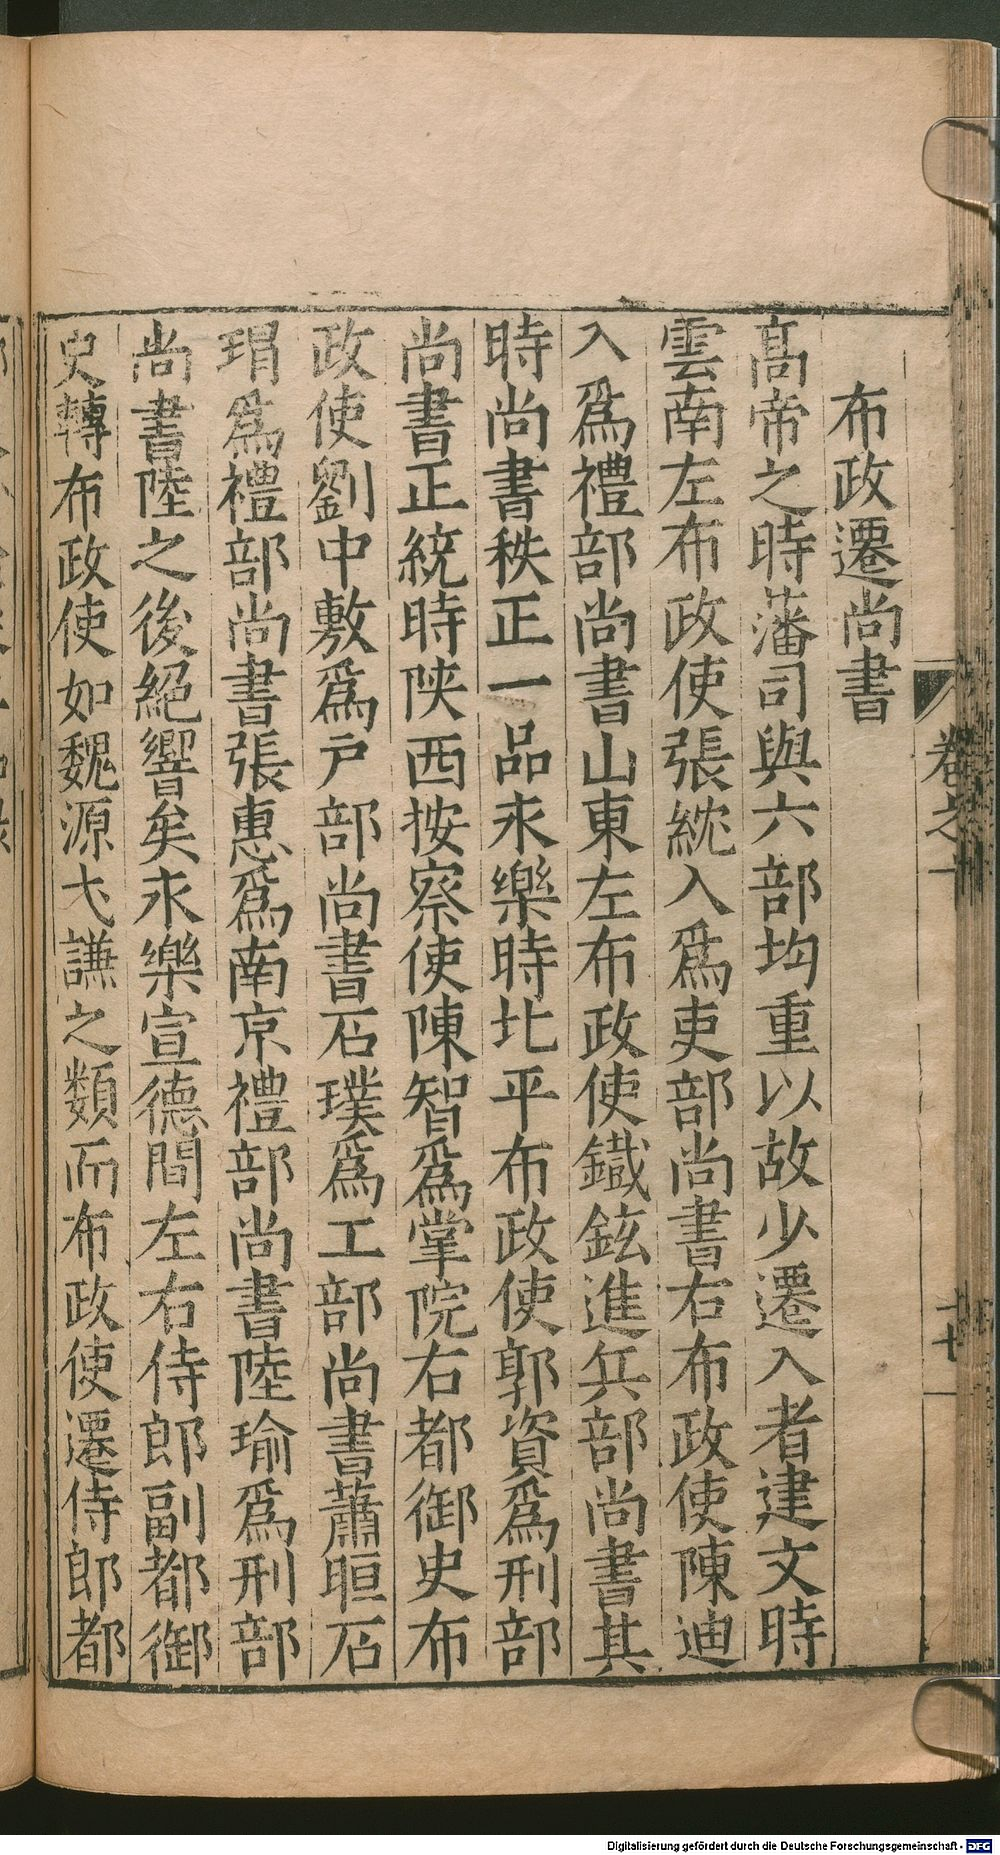 布政遷尚書
髙帝之時藩司與六部均重以故少遷入者建文時
雲南左布政使張紞入爲吏部尚書右布政使陳迪
入爲禮部尚書山東左布政使鐵鉉進兵部尚書其
時尚書秩正一品永樂時北平布政使郭資爲刑部
尚書正統時陝西按察使陳智爲掌院右都御史布
政使劉中敷爲戸部尚書石璞爲工部尚書蕭晅石
瑁爲禮部尚書張惠爲南京禮部尚書陸瑜爲刑部
尚書陸之後絕響矣永樂宣德間左右侍郎副都御
史轉布政使如魏源弋謙之類而布政使遷侍郎都
卷之十
十七
Digitalisierung gefördert durch die Deutsche Forschungsgemeinschaft - DFG